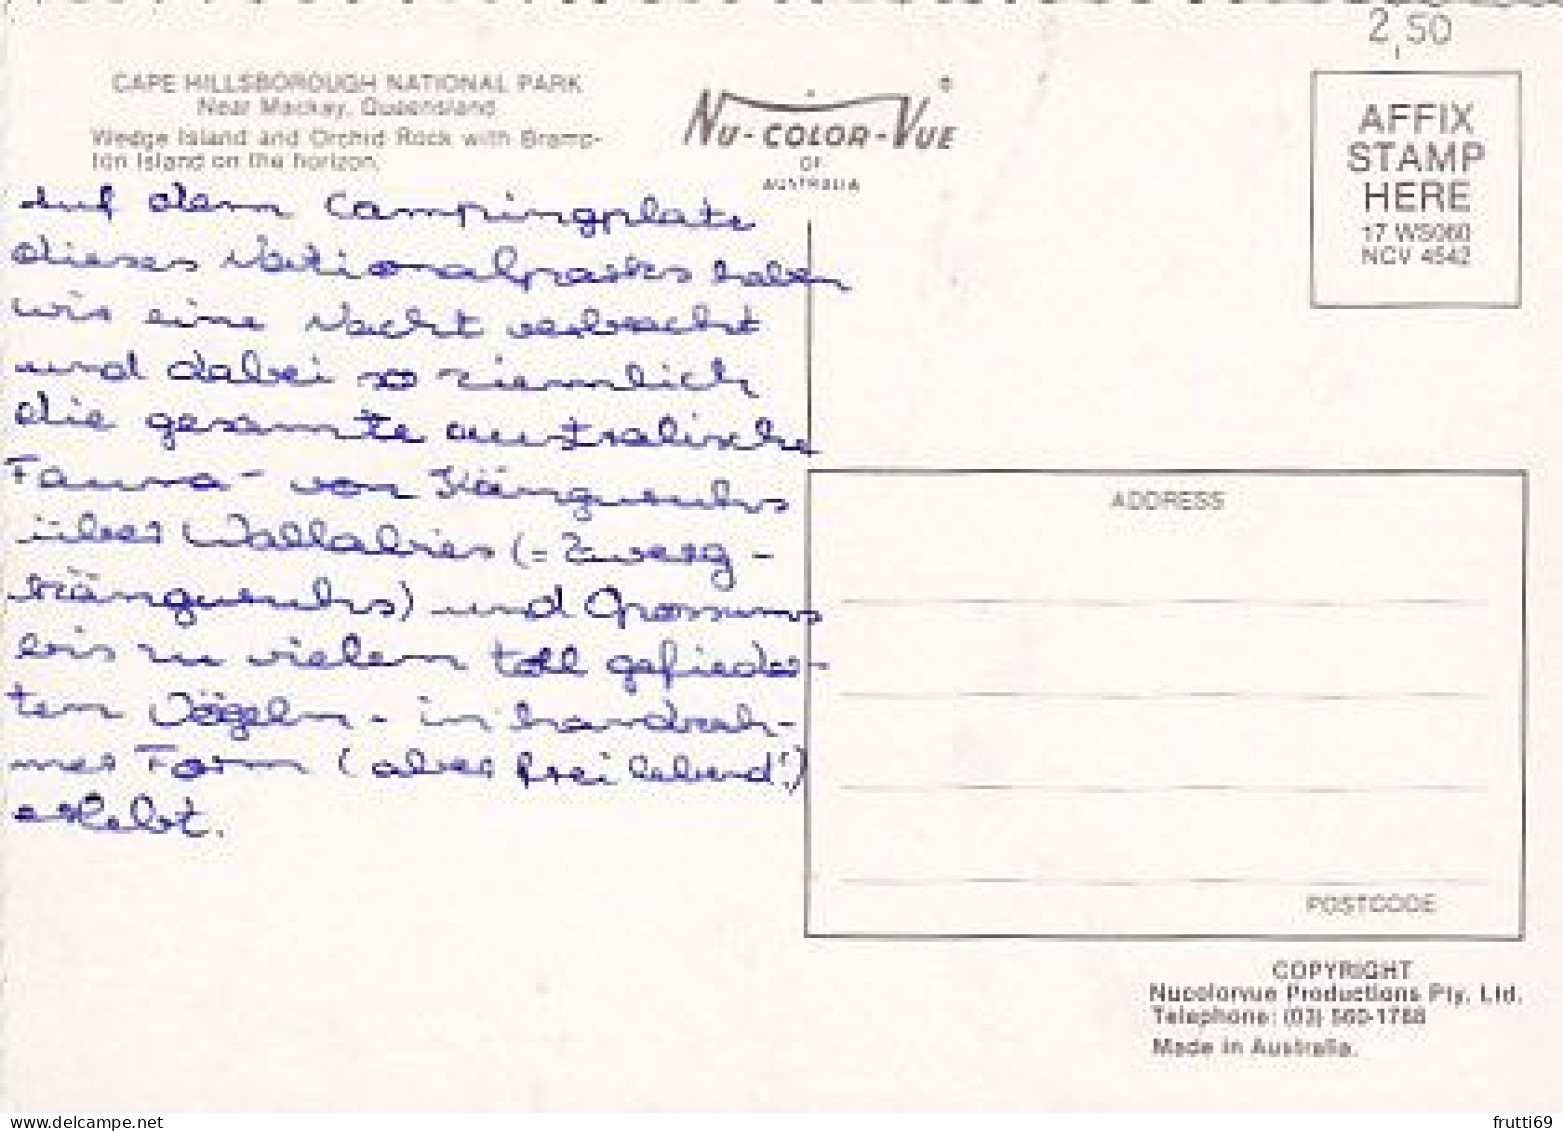 2,50
CAPE HILLSBOROUGH NATIONAL PARK
Near Mackay, Queensland
Wedge Island and Orchid Rock with Bramp-
ton Island on the horizon.
NU-COLOR-VUE
®
OF
AUSTRALIA
AFFIX
STAMP
HERE
17 WS060
NCV 4542
Auf dem Campingplatz
dieses Nationalparks haben
wir eine Nacht verbracht
und dabei so ziemlich
die gesamte australische
Fauna - von Känguruhs
über Wallabies (= Zwerg-
känguruhs) und Opossums
bis zu vielen toll gefieder-
ten Vögeln - in handzah-
mer Form (aber freilebend!)
erlebt.
ADDRESS
POSTCODE
COPYRIGHT
Nucolorvue Productions Pty. Ltd.
Telephone: (03) 560-1788
Made in Australia.
www.delcampe.net
frutti69